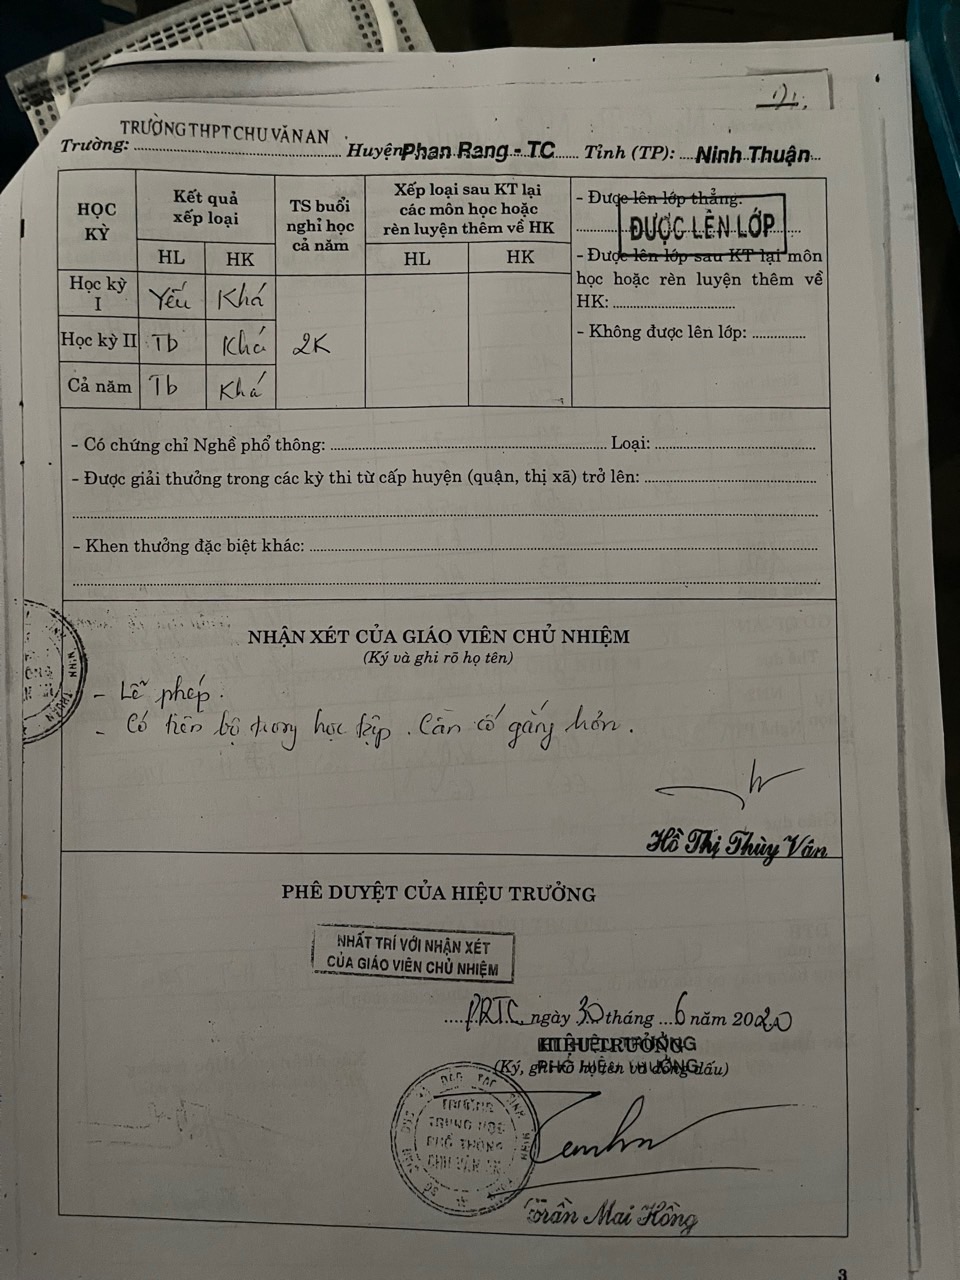 21.
Trường: TRƯỜNG THPT CHU VĂN AN Huyện Phan Rang - TC Tỉnh (TP): Ninh Thuận
HỌC KỲ
Kết quả xếp loại
TS buổi nghỉ học cả năm
Xếp loại sau KT lại các môn học hoặc rèn luyện thêm về HK
HL HK HL HK
Học kỳ I Yếu Khá
Học kỳ II Tb Khá 2K
Cả năm Tb Khá
- Được lên lớp thẳng:
ĐƯỢC LÊN LỚP
- Được lên lớp sau KT lại môn
học hoặc rèn luyện thêm về
HK:
- Không được lên lớp:
- Có chứng chỉ Nghề phổ thông: Loại:
- Được giải thưởng trong các kỳ thi từ cấp huyện (quận, thị xã) trở lên:
- Khen thưởng đặc biệt khác:
NHẬN XÉT CỦA GIÁO VIÊN CHỦ NHIỆM
(Ký và ghi rõ họ tên)
- Lễ phép.
- Có tiến bộ trong học tập. Cần cố gắng hơn.
Hồ Thị Thùy Vân
PHÊ DUYỆT CỦA HIỆU TRƯỞNG
NHẤT TRÍ VỚI NHẬN XÉT
CỦA GIÁO VIÊN CHỦ NHIỆM
PRTC, ngày 30 tháng 6 năm 2020
HIỆU TRƯỞNG
PHÓ HIỆU TRƯỞNG
(Ký, ghi rõ họ tên và đóng dấu)
TRƯỜNG
TRUNG HỌC
PHỔ THÔNG
CHU VĂN AN
Trần Mai Hồng
3